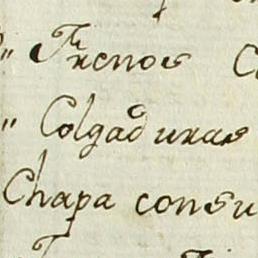 " Frenos
" Colgaduras
Chapa consu